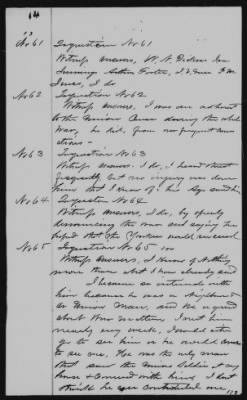 14
No 61 Inquestion No 61
Witness answers, W. H. Dicken Ira
Jennings, I. W. Dues F. M.
Jones, I do
No 62 Inquestion No 62
Witness answers. I was an adherent
to the Union Cause during the whole
War, he did, from
times -
No 63 Inquestion No 63
Witness answers. I do, I heard them
frequently but no injury was done
them that I know of
No 64 Inquestion No 64
Witness answers, I do, by openly
denouncing the War and saying he
hoped that the Yankees would succeed
No 65 Inquestion No 65
Witness answers, I know of nothing
more than what I have already said
I became so intimate with
him because he was a Neighbor &
a Union Man, and we agreed
about War matters. I met him
nearly every week, I would often
go to see him or he would come
to see me. He was the only man
that saw the Union Soldier at my
house & Conversed with him. I
think he contributed some,